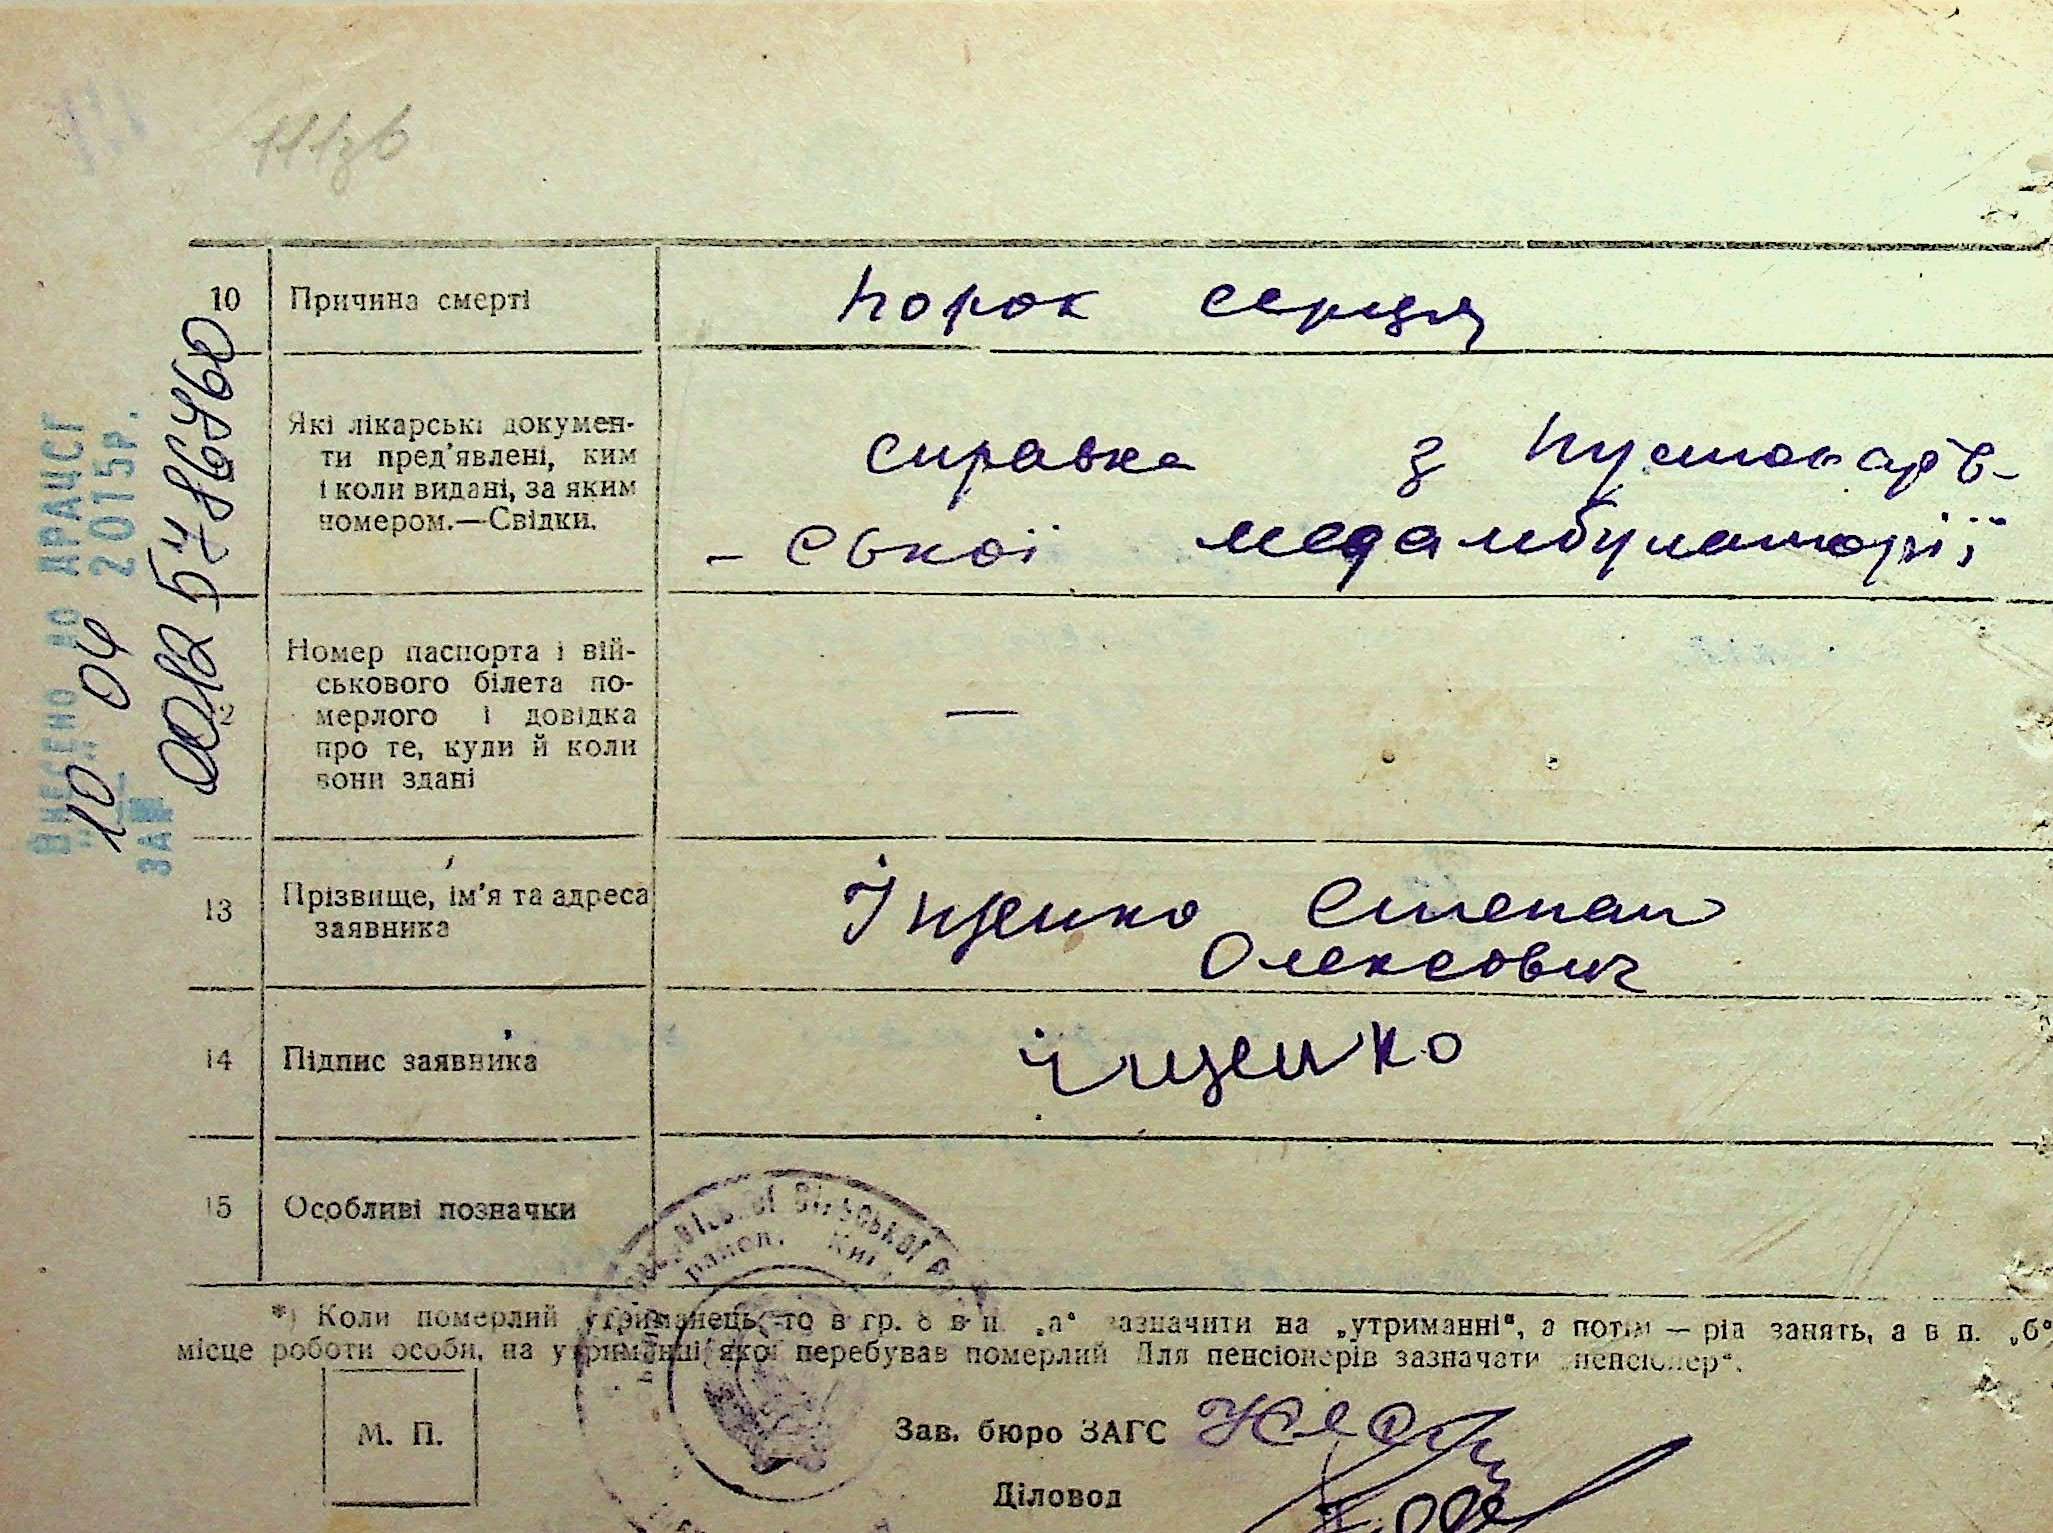 10 Причина смерті порок серця
Які лікарські докумен-
ти пред'явлені, ким
і коли видані, за яким
номером.—Свідки.
справка з
- ської медамбулаторії
Номер паспорта і вій-
ськового білета по-
мерлого і довідка
про те, куди й коли
вони здані
—
13 Прізвище, ім'я та адреса
заявника
Іщенко Степан
Олексович
14 Підпис заявника Іщенко
15 Особливі позначки
*) Коли померлий утриманець, то в гр. 8 в п. „а“ зазначити на „утриманні“, а потім — рід занять, а в п. „б“
місце роботи особи, на утриманні якої перебував померлий Для пенсіонерів зазначати „пенсіонер“.
М. П.
Зав. бюро ЗАГС
Діловод
Внесено до ДРАЦСГ
10 04 2015р.
ЗА №